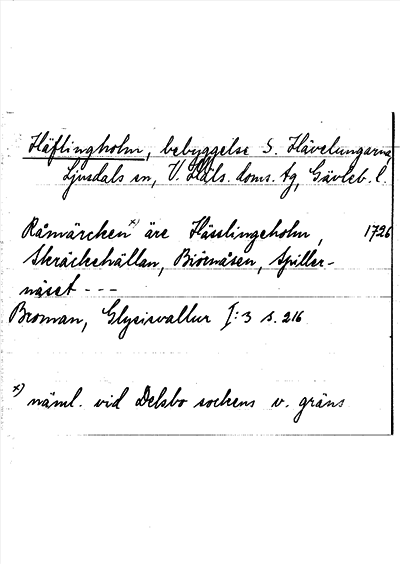 Häflingholm, bebyggelse S. Hävelungarna,
Ljusdals sn, V. Häls. doms. tg, Gävleb. l.
Råmärcken x) äre Häselingeholm, 1726
Skräckehällan, Biörnåsen, Spiller-
näset - - -
Broman, Glysisvallur I:3 s. 216
x) näml. vid Delsbo sockens v. gräns